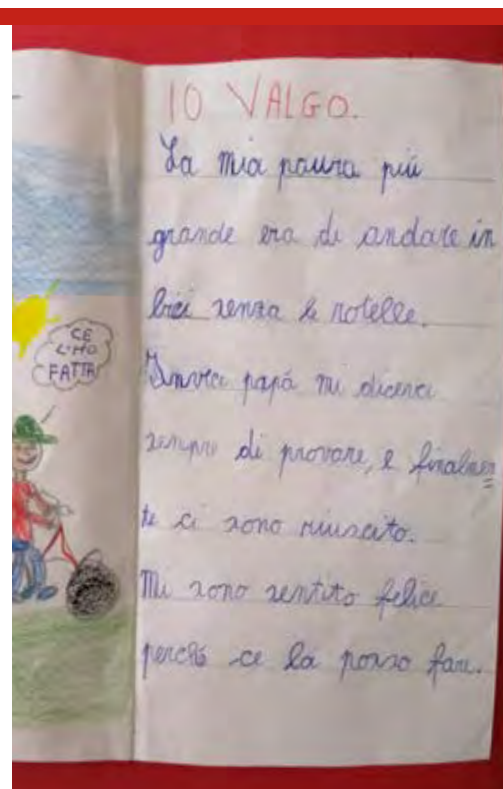 IO VALGO.
La mia paura più
grande era di andare in
bici senza le rotelle.
Invece papà mi diceva
sempre di provare, e finalmen
te ci sono riuscito.
Mi sono sentito felice
perché ce la posso fare.
CE
L'HO
FATTA